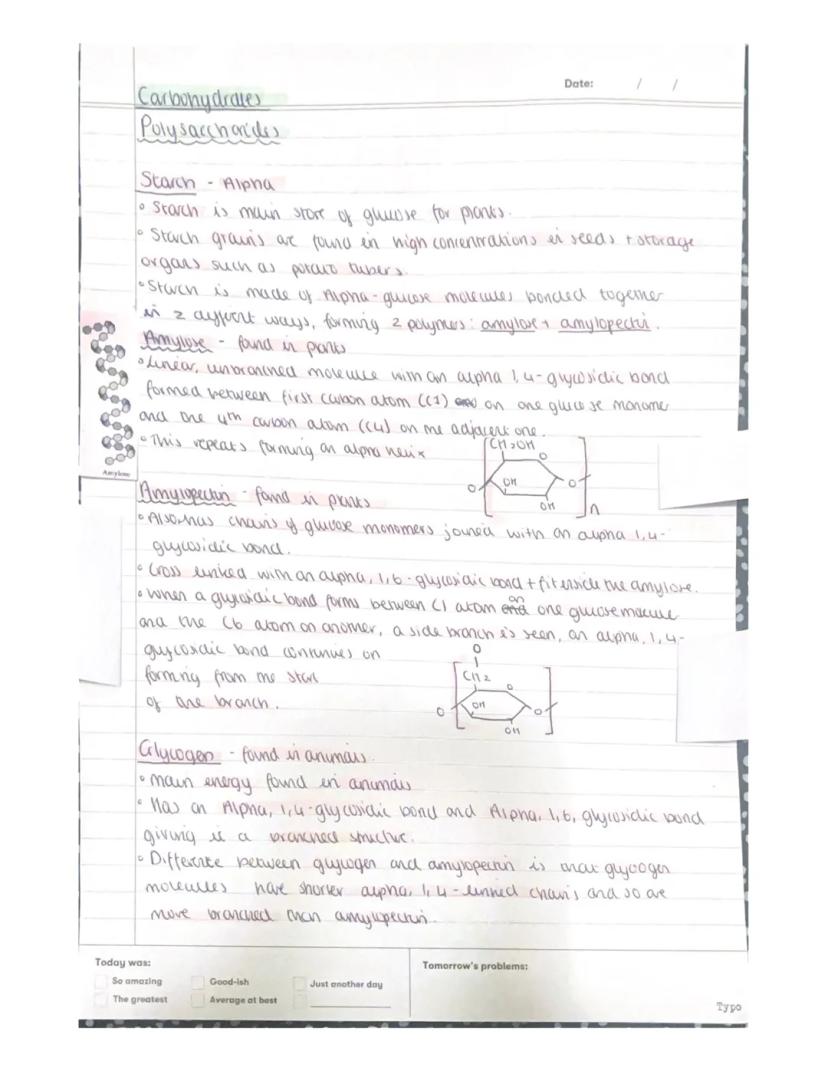 Date: / /
Carbohydrates
Polysaccharides
Starch - Alpha
• Starch is main store of glucose for plants.
• Starch grains are found in high concentrations in seeds + storage
organs such as potato tubers.
• Starch is made of Alpha-glucose molecules bonded together
in 2 different ways, forming 2 polymers: amylose + amylopectin.
Amylose - found in plants
• Linear, unbranched molecule with an alpha 1,4-glycosidic bond
formed between first carbon atom (C1) on one glucose monomer
and the 4th carbon atom (C4) on the adjacent one.
• This repeats forming an alpha helix
Amylose
CH2OH
O
O OH O
OH n
Amylopectin - found in plants
• Also has chains of glucose monomers joined with an alpha 1,4-
glycosidic bond.
• Cross linked with an alpha, 1,6-glycosidic bond + fit inside the amylose.
• When a glycosidic bond forms between C1 atom on one glucose molecule
and the C6 atom on another, a side branch is seen, an alpha, 1,4-
glycosidic bond continues on
forming from the start
of the branch.
O
CH2
O
O OH O
OH
Glycogen - found in animals.
• main energy found in animals
• Has an Alpha, 1,4-glycosidic bond and Alpha, 1,6, glycosidic bond
giving it a branched structure.
• Difference between glycogen and amylopectin is that glycogen
molecules have shorter alpha, 1,4-linked chains and so are
more branched than amylopectin.
Today was:
So amazing
Good-ish
Just another day
The greatest
Average at best
Tomorrow's problems:
Typo